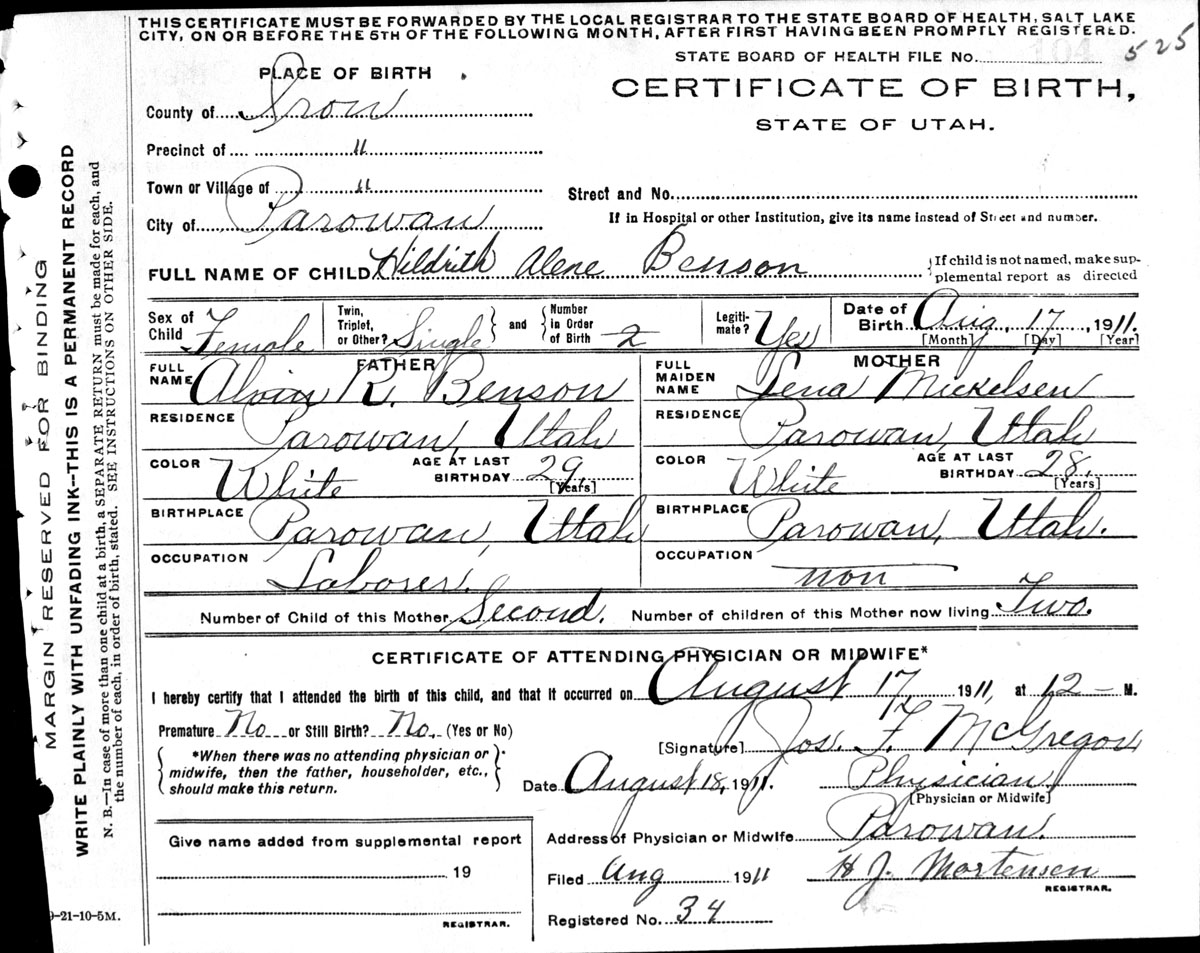 THIS CERTIFICATE MUST BE FORWARDED BY THE LOCAL REGISTRAR TO THE STATE BOARD OF HEALTH, SALT LAKE
CITY, ON OR BEFORE THE 5TH OF THE FOLLOWING MONTH, AFTER FIRST HAVING BEEN PROMPTLY REGISTERED.
STATE BOARD OF HEALTH FILE No. 104 525
PLACE OF BIRTH
CERTIFICATE OF BIRTH,
STATE OF UTAH.
County of Iron
Precinct of "
Town or Village of "
Street and No.
City of Parowan
If in Hospital or other Institution, give its name instead of Street and number.
FULL NAME OF CHILD Hildrith Alene Benson {If child is not named, make sup-
plemental report as directed
Sex of Child Female Twin, Triplet, or Other? Single and Number in Order of Birth 2 Legiti-mate? Yes Date of Birth Aug. 17, 1911.
[Month] [Day] [Year]
FATHER MOTHER
FULL NAME Alvin R. Benson FULL MAIDEN NAME Lena Mickelsen
RESIDENCE Parowan, Utah RESIDENCE Parowan, Utah
COLOR White AGE AT LAST BIRTHDAY 29, [Years] COLOR White AGE AT LAST BIRTHDAY 28, [Years]
BIRTHPLACE Parowan, Utah BIRTHPLACE Parowan, Utah.
OCCUPATION Laborer. OCCUPATION non
Number of Child of this Mother Second. Number of children of this Mother now living Two.
CERTIFICATE OF ATTENDING PHYSICIAN OR MIDWIFE*
I hereby certify that I attended the birth of this child, and that it occurred on August 17, 1911, at 12 — M.
Premature No or Still Birth? No. (Yes or No)
[Signature] Jos. F. McGregor
{*When there was no attending physician or
midwife, then the father, householder, etc.,
should make this return.}
Date August 18, 1911. Physician
[Physician or Midwife]
Address of Physician or Midwife Parowan.
Give name added from supplemental report
19
REGISTRAR.
Filed Aug 1911 H J. Mortensen
REGISTRAR.
Registered No. 34
MARGIN RESERVED FOR BINDING
WRITE PLAINLY WITH UNFADING INK--THIS IS A PERMANENT RECORD
N. B.—In case of more than one child at a birth, a SEPARATE RETURN must be made for each, and
the number of each, in order of birth, stated. SEE INSTRUCTIONS ON OTHER SIDE.
9-21-10-5M.